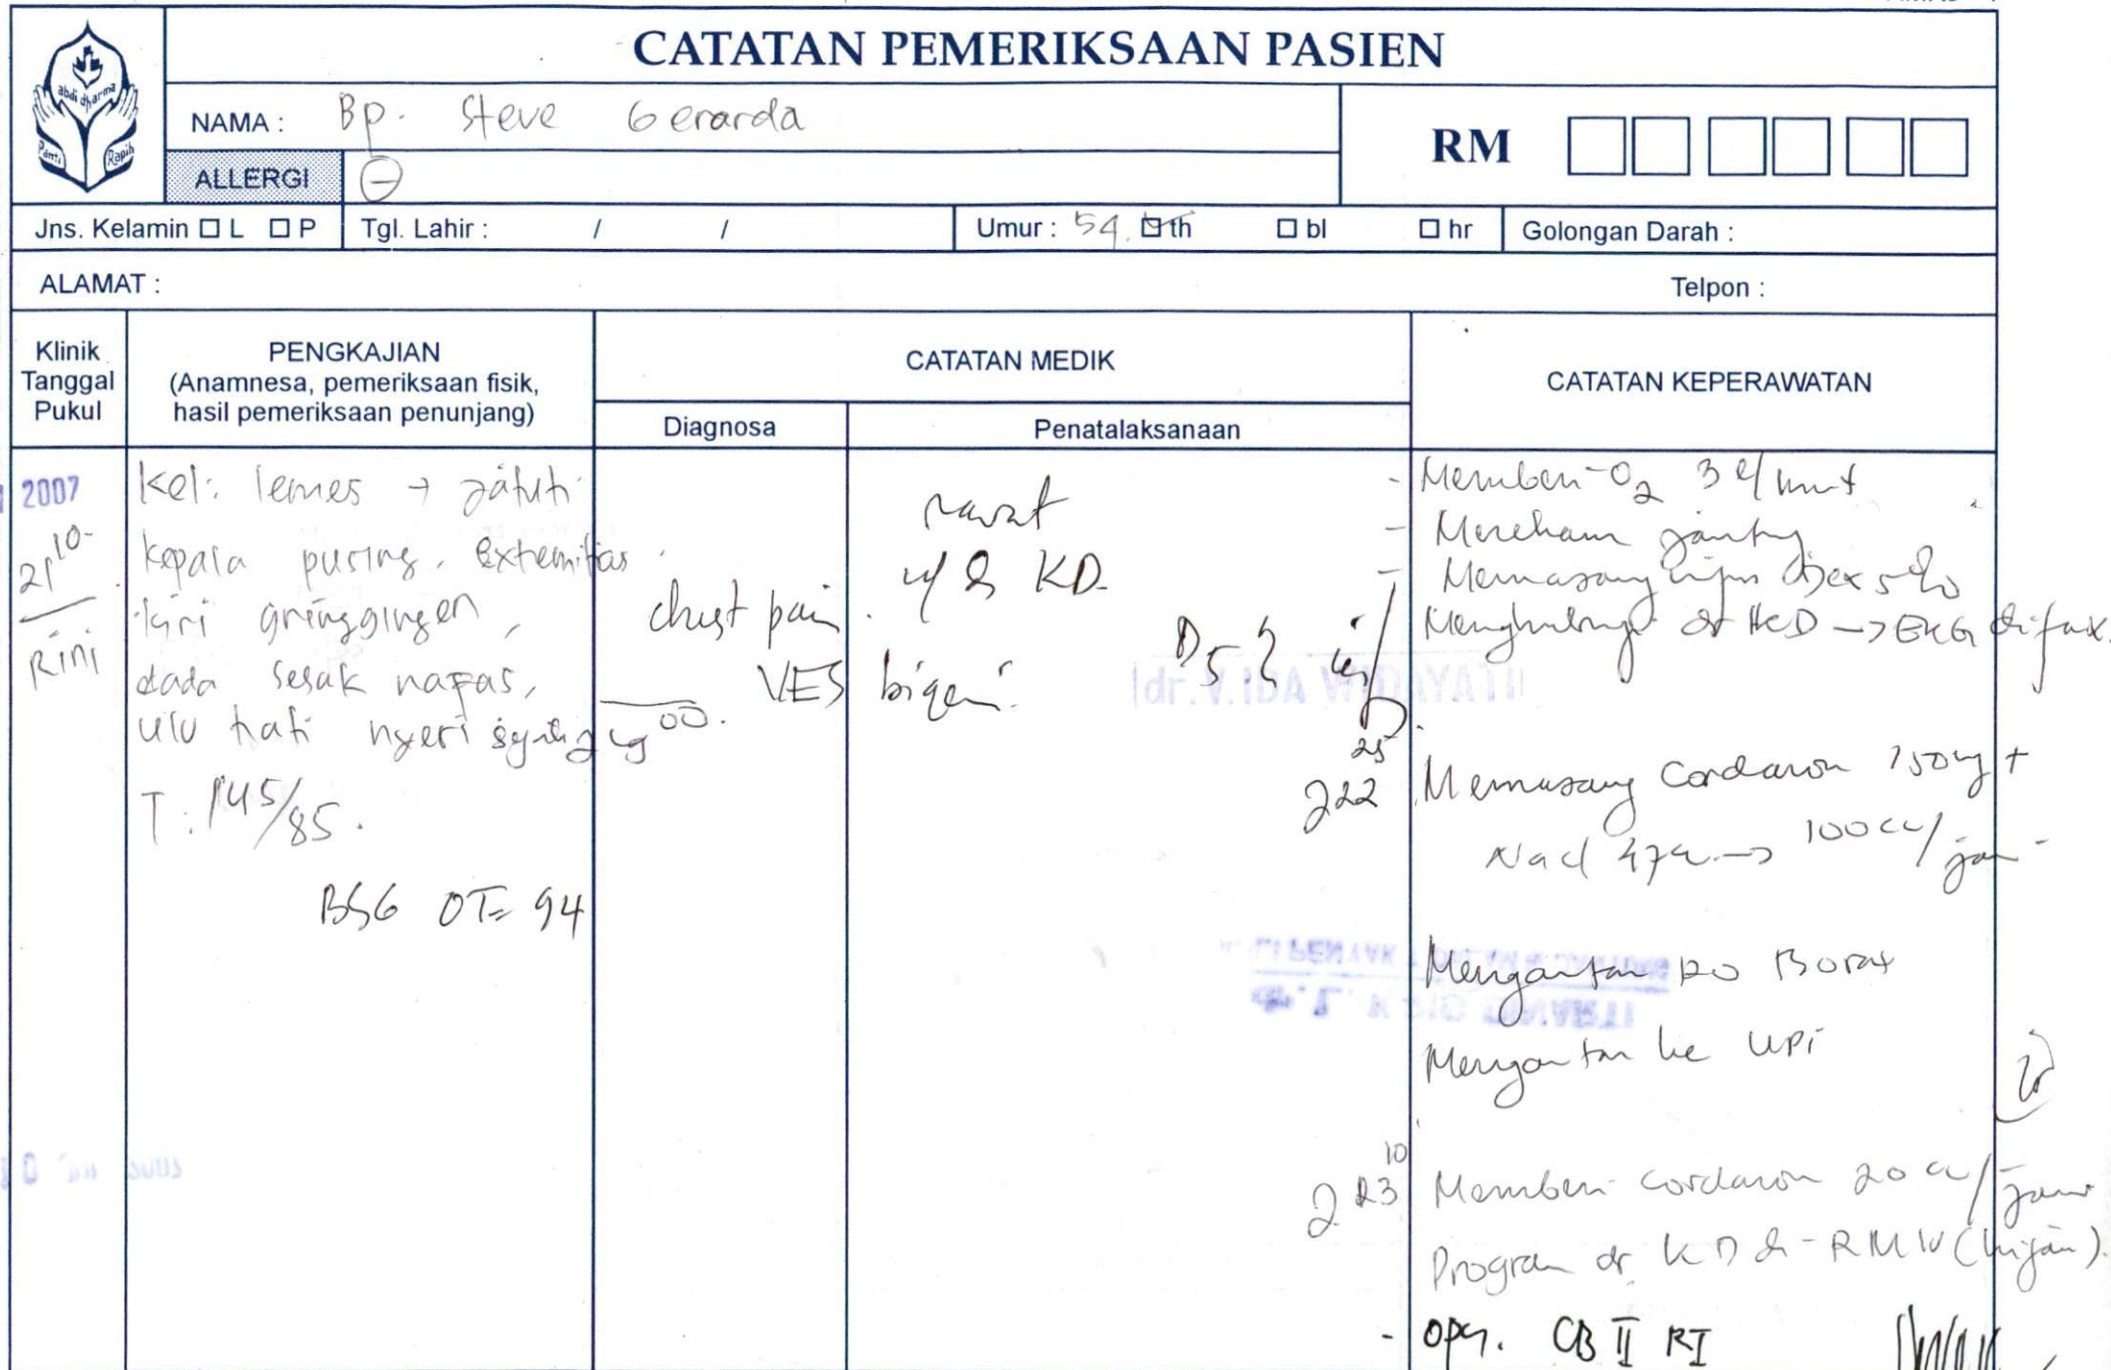 CATATAN PEMERIKSAAN PASIEN
abdi dharma
Panti Rapih
NAMA : Bp. Steve Gerarda
RM
ALLERGI ⊖
Jns. Kelamin ☐ L ☐ P Tgl. Lahir : / / Umur : 54 ☐ th ☐ bl ☐ hr Golongan Darah :
ALAMAT : Telpon :
Klinik
Tanggal
Pukul
PENGKAJIAN
(Anamnesa, pemeriksaan fisik,
hasil pemeriksaan penunjang)
CATATAN MEDIK
Diagnosa
Penatalaksanaan
CATATAN KEPERAWATAN
2007
21 10
Rini
Kel: lemes →
kepala pusing, extremitas
kiri gringgingen,
dada sesak napas,
ulu hati nyeri
T : 145/85.
BSG OT= 94
chest pain
VES bigem
rawat
KD
D5
(dr. V. IDA WIDAYATI)
- Memberi O2 3 l/mnt
- Merekam jantung
- Memasang infus Dex 5%
Menghubungi dr KD → EKG difax.
22 25 Memasang Cordaron 150 mg +
Nacl → 100 cc/jam
Mengantar RO
Mengantar ke UPI
23 10 Memberi cordaron 20 cc/jam
Program dr KD
- oper. CB II RI